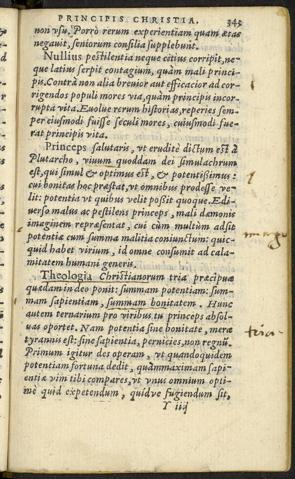 PRINCIPIS CHRISTIA. 345
non vsu. Porrò rerum experientiam quam ætas
negauit, seniorum consilia supplebunt.
Nullius pestilentia neque citius corripit, ne-
que latius serpit contagium, quàm mali princi-
pis. Contrà non alia breuior aut efficacior ad cor-
rigendos populi mores via, quàm principis incor-
rupta vita. Euolue rerum historias, reperies sem-
per eiusmodi fuisse seculi mores, cuiusmodi fue-
rat principis vita.
Princeps salutaris, vt eruditè dictum est à
Plutarcho, viuum quoddam dei simulachrum
est, qui simul & optimus est, & potentissimus:
cui bonitas hoc præstat, vt omnibus prodesse ve-
lit: potentia vt quibus velit possit quoque. E di-
uerso malus ac pestilens princeps, mali dæmonis
imaginem repræsentat, cui cum multùm adsit
potentiæ cum summa malitia coniunctum: quic-
quid habet virium, id omne consumit ad cala-
mitatem humani generis.
imago
Theologia Christianorum tria præcipua
quædam in deo ponit: summam potentiam: sum-
mam sapientiam, summam bonitatem. Hunc
autem ternarium pro viribus tu princeps absol-
uas oportet. Nam potentia sine bonitate, mera
tria.
tyrannis est: sine sapientia, pernicies, non regnū.
Primum igitur des operam, vt quandoquidem
potentiam fortuna dedit, quàmmaximam sapi-
entiæ vim tibi compares, vt vnus omnium opti-
mè quid expetendum, quídve fugiendum sit,
Y iiij